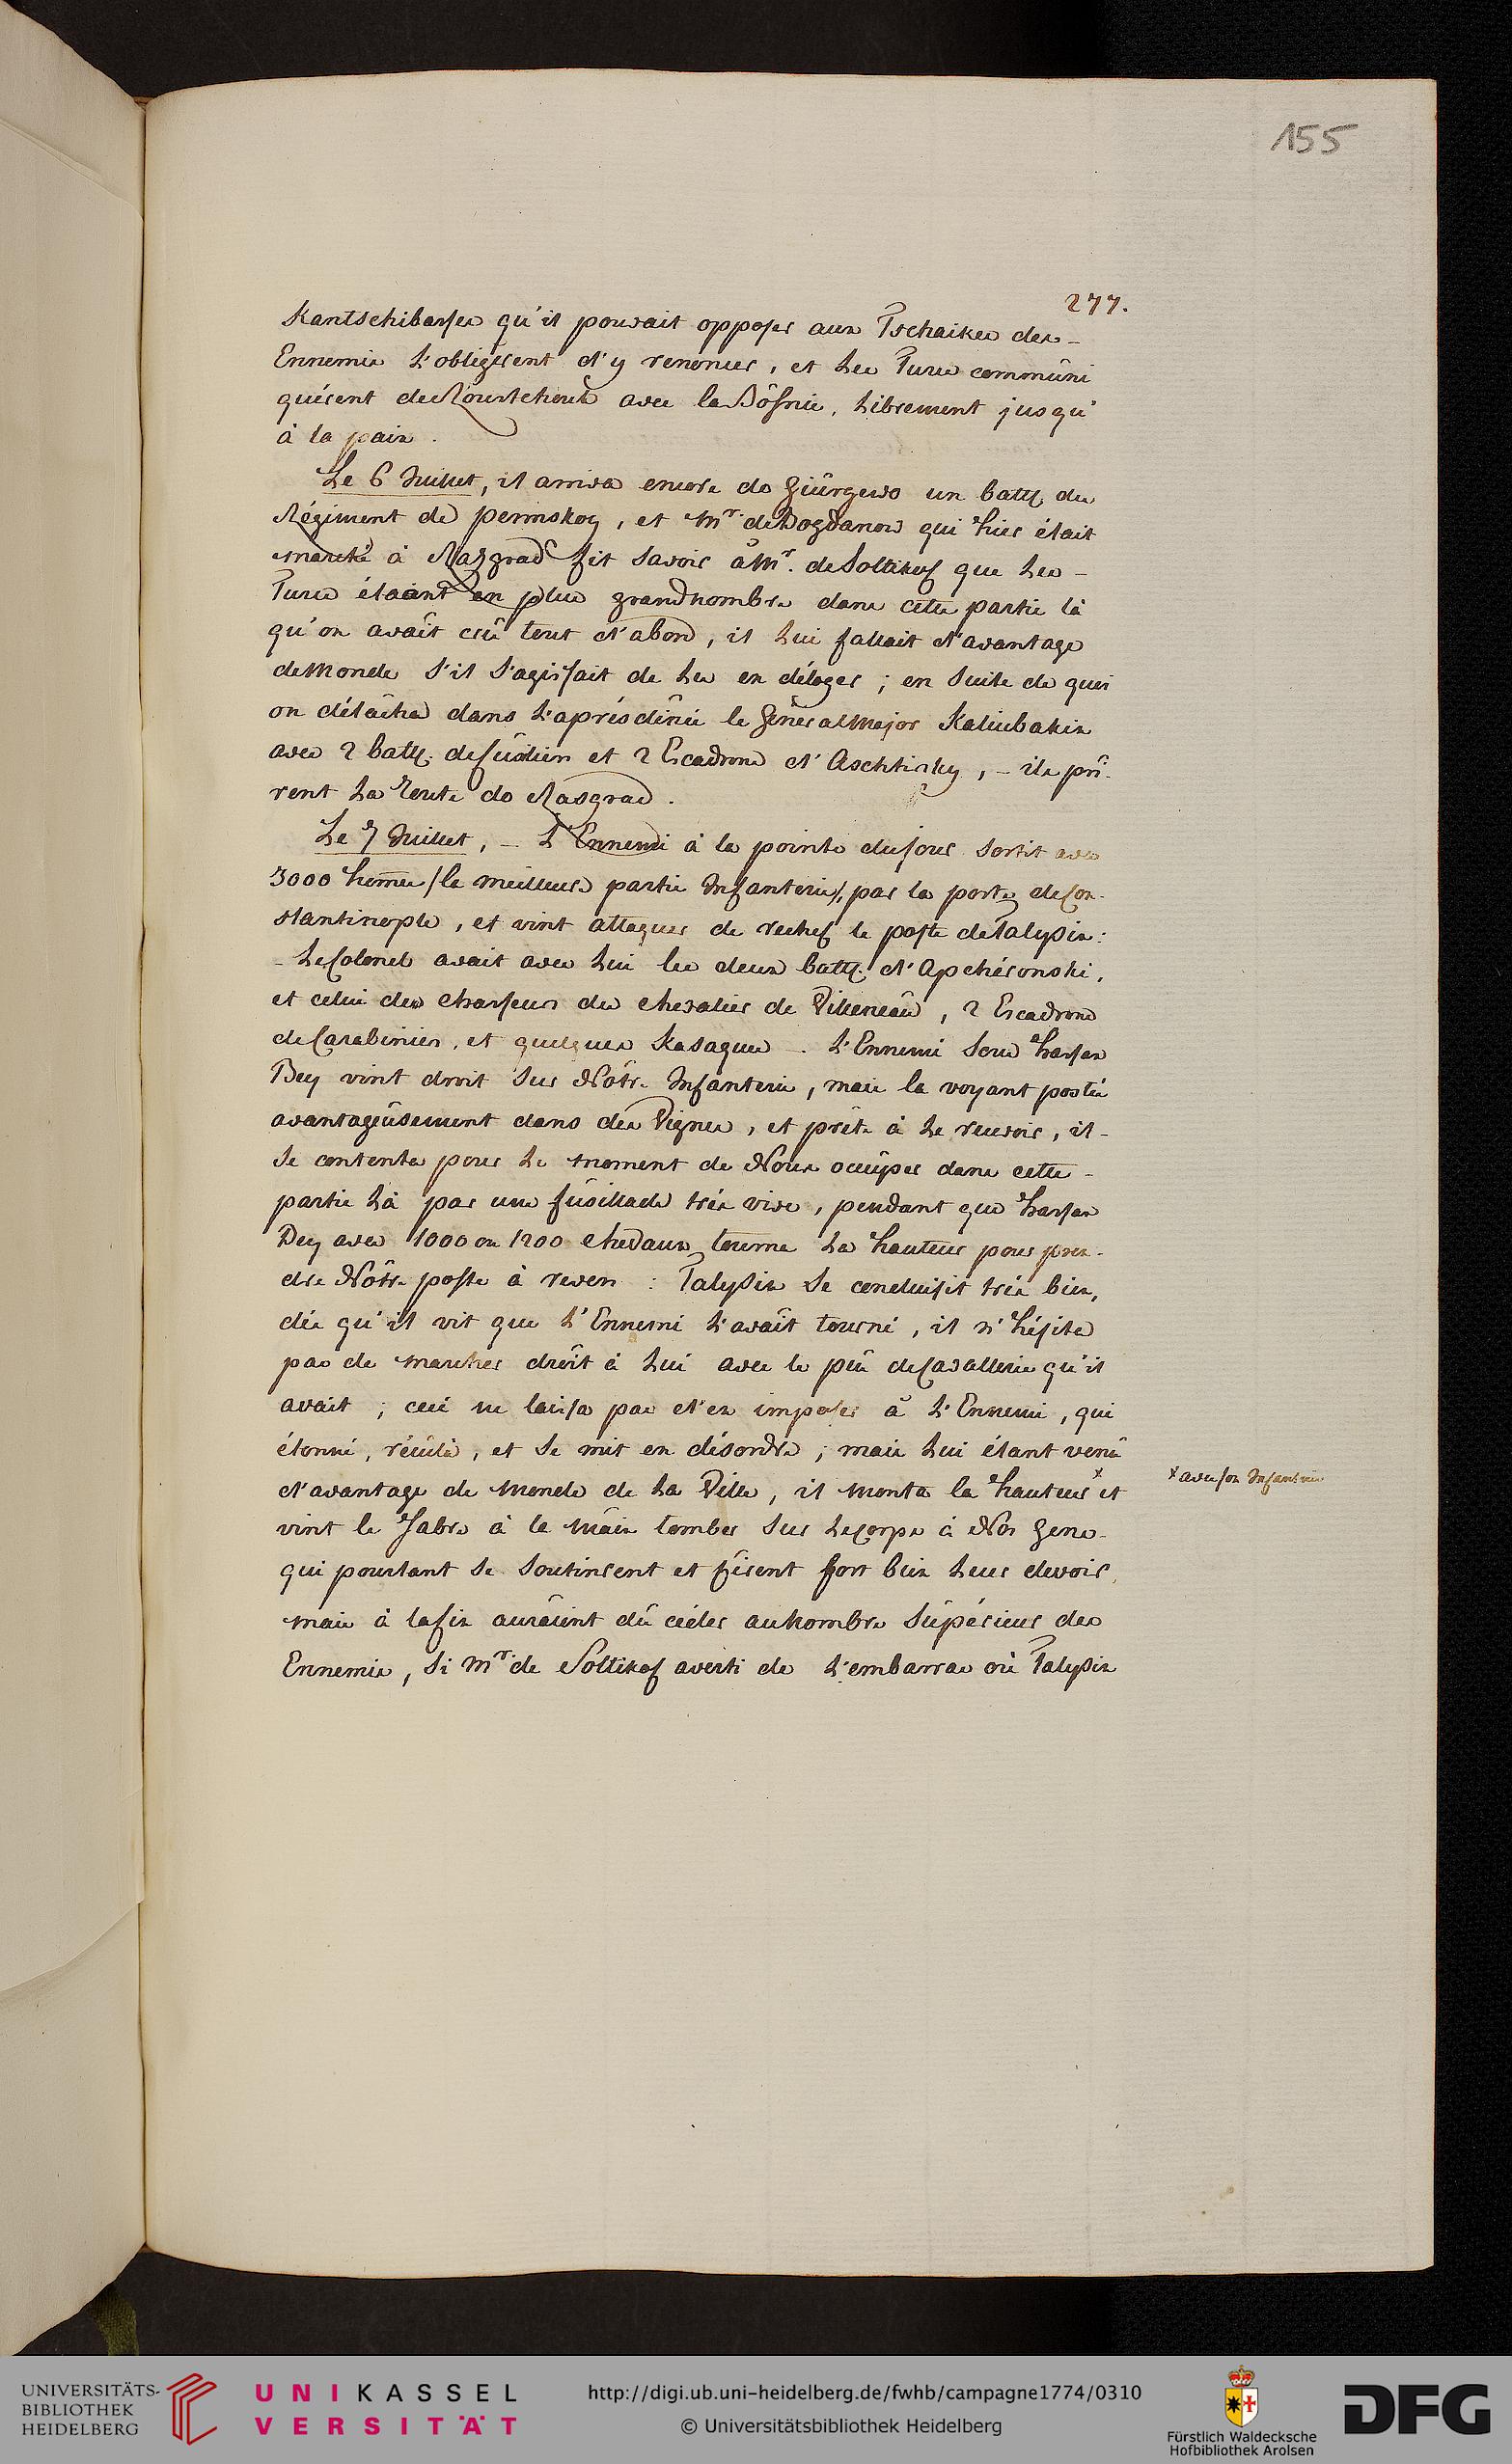 155
277.
Kantschibasses qu'il pouvait opposer aux Tschaikes des-
Ennemis L'obligèrent d'y renoncer, et Les Turcs commûni
quèrent de Roustchouk avec la Bôsnie, Librement jusqu'
à la paix.
Le 6 Juillet, il arriva encore de Giûrgewo un batt. du
Régiment de permskoy, et Mr. de Bogdanow qui hier était
marché à Rasgrad fit savoir à Mr. de Soltikof que Les-
Turcs étaient en plus grand nombre dans cette partie là
qu'on avait crû tout d'abord, il Lui fallait d'avantage
de Monde S'il S'agissait de Les en déloger; en Suite de quoi
on détâcha dans L'aprésdînée le Général Major Kaliubakin
avec 2 batt. de fûsilier et 2 Escadrons d'Aschtirsky, - ils prî-
rent La Route de Rasgrad.
Le 7 Juillet, - L'Ennemi à la pointe du jour Sortit avec
3000 homes /la meilleure partie Infanterie/, par la porte de Con-
stantinople, et vint attaquer de rechef le poste de Talysin:
- Le Colonel avait avec Lui les deux batt. d'Apchéronski,
et celui des chasseurs du chevalier de Villeneau, 2 Escadrons
de Carabiniers, et quelques Kasaques -. L'Ennemi Sous Hassan
Bey vint droit Sur Nôtre Infanterie, mais la voyant postée
avantageûsement dans des Vignes, et prête à Le recevoir, il-
Se contenta pour Le moment de Nous occûper dans cette-
partie Là par une fûsillade trés vive, pendant que Hassan
Bey avec 1000 ou 1200 chevaux tourna La hauteur pour pren-
dre Nôtre poste à revers : Talysin Se conduisit trés bien,
dés qu'il vit que L'Ennemi L'avait tourné, il n'hésita
pas de marcher droît à Lui avec le peû de Cavallerie qu'il
avait; ceci ne laissa pas d'en imposer à L'Ennemi, qui
étonné, récûla, et Se mit en désordre; mais Lui étant venû
d'avantage de Monde de La Ville, il monta la hauteur x et
x avec son Infanterie
vint le Sabre à la Main tomber Sur Le corps à Nos Gens-
qui pourtant Se Soutinrent et firent fort bien Leur devoir,
mais à la fin auraient dû céder au Nombre Sûpérieur des
Ennemis, Si Mr. de Soltikof averti de L'embarras où Talysin
UNIVERSITÄTS-
BIBLIOTHEK
HEIDELBERG
UNIKASSEL
VERSITÄT
http://digi.ub.uni-heidelberg.de/fwhb/campagne1774/0310
© Universitätsbibliothek Heidelberg
Fürstlich Waldecksche
Hofbibliothek Arolsen
DFG